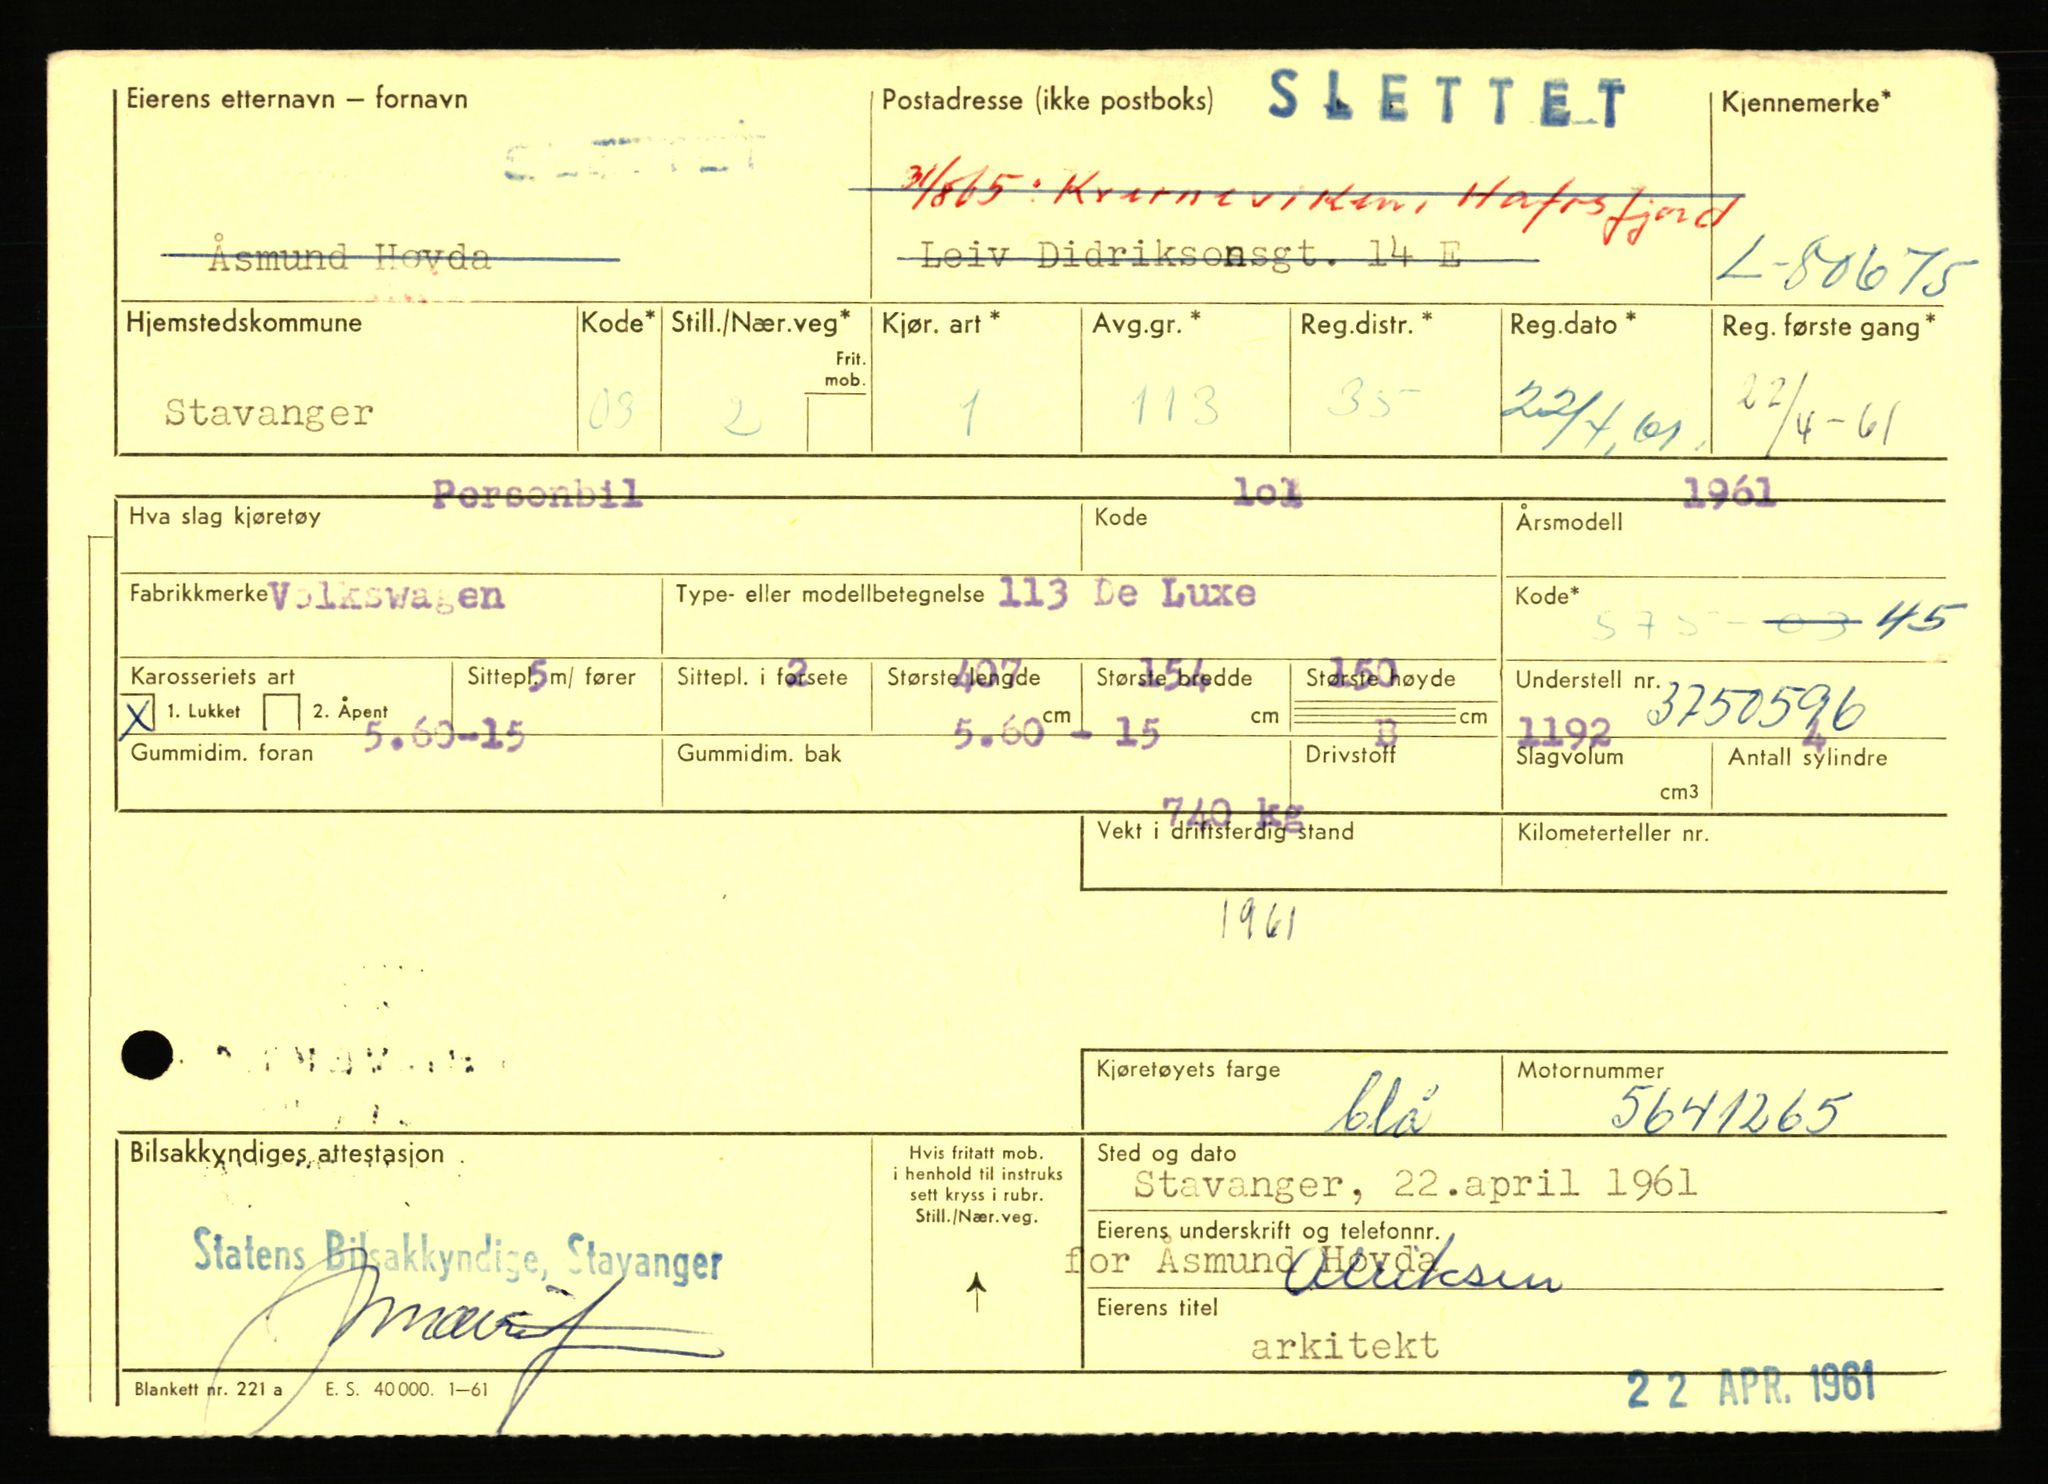 Eierens etternavn — fornavn
Postadresse (ikke postboks)
SLETTET
Kjennemerke*
SLETTET
31/8 65: Kvernevikens Hafrsfjord
Åsmund Hovda
Leiv Didriksonsgt. 14 E
L-80675
Hjemstedskommune
Kode*
Still./Nær.veg*
Frit. mob.
Kjør. art *
Avg.gr. *
Reg.distr. *
Reg.dato *
Reg. første gang *
Stavanger
03
2
1
113
35
22/4, 61.
22/4-61
Personbil
101
1961
Hva slag kjøretøy
Kode
Årsmodell
Fabrikkmerke Volkswagen
Type- eller modellbetegnelse 113 De Luxe
Kode*
575 - 03 45
Karosseriets art
Sittepl. m/ fører
5
Sittepl. i forsete
2
Største lengde
407
Største bredde
154
Største høyde
150
Understell nr.
3750596
X 1. Lukket
2. Åpent
cm
cm
cm
5.60-15
5.60 - 15
B
1192
4
Gummidim. foran
Gummidim. bak
Drivstoff
Slagvolum
cm3
Antall sylindre
740 kg
Vekt i driftsferdig stand
Kilometerteller nr.
1961
Kjøretøyets farge
blå
Motornummer
5641265
Bilsakkyndiges attestasjon
Hvis fritatt mob.
i henhold til instruks
sett kryss i rubr.
Still./Nær.veg.
Sted og dato
Stavanger, 22.april 1961
Eierens underskrift og telefonnr.
Statens Bilsakkyndige, Stavanger
for Åsmund Hovda
Eierens titel
arkitekt
Blankett nr. 221 a E. S. 40 000. 1—61
22 APR. 1961